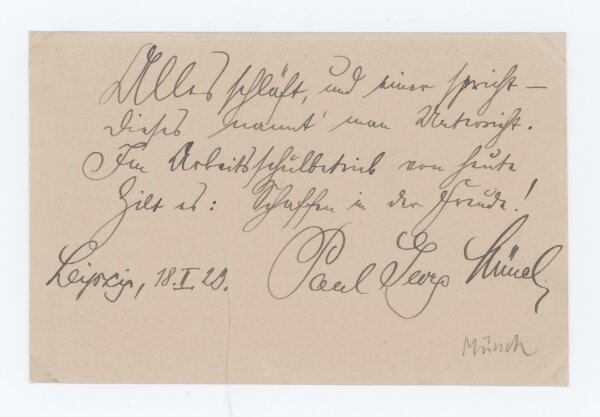 Alles schläft, und einer spricht –
dieses nannt' man Unterricht.
Im Arbeitsschulbetrieb von heute
Gilt es: Schaffen in der Freude!
Leipzig, 18.I.29. Paul Georg Münch
Münch